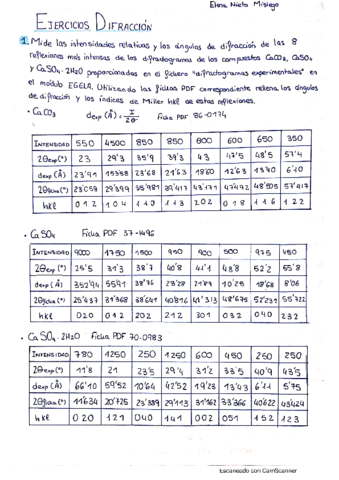 Elena Nieto Misiego
EJERCICIOS DIFRACCIÓN
1. Mide las intensidades relativas y los ángulos de difracción de las 8
reflexiones más intensas de los difractogramas de los compuestos CaCO3, CaSO4
y CaSO4·2H2O proporcionadas en el fichero "difractogramas experimentales" en
el módulo EGELA. Utilizando las fichas PDF correspondiente rellena los ángulos
de difracción y los índices de Miller hkl de estas reflexiones.
· CaCO3 dexp (Å) = I/2θ Ficha PDF 86-0174
INTENSIDAD 550 4500 850 850 800 600 650 350
2θexp (°) 23 29'3 35'9 39'3 43 47'5 48'5 57'4
dexp (Å) 23'91 153'58 23'68 21'63 18'60 12'63 13'40 6'10
2θficha (°) 23'059 29'399 35'981 39'417 43'171 47'492 48'505 57'417
hkl 012 104 110 113 202 018 116 122
· CaSO4 Ficha PDF 37-1496
INTENSIDAD 9000 1750 1500 950 900 500 975 450
2θexp (°) 25'5 31'3 38'7 40'8 41'1 48'8 52'2 55'8
dexp (Å) 352'94 55'91 38'76 23'28 21'89 10'25 18'68 8'06
2θficha (°) 25'437 31'368 38'641 40'816 41'313 48'675 52'231 55'722
hkl 020 012 202 212 301 032 040 232
· CaSO4·2H2O Ficha PDF 70-0983
INTENSIDAD 780 1250 250 1250 600 450 250 250
2θexp (°) 11'8 21 23'5 29'4 31'2 33'5 40'9 43'5
dexp (Å) 66'10 59'52 10'64 42'52 19'23 13'43 6'11 5'75
2θficha (°) 11'634 20'725 23'389 29'113 31'162 33'366 40'652 43'424
hkl 020 121 040 141 002 051 152 123
Escaneado con CamScanner